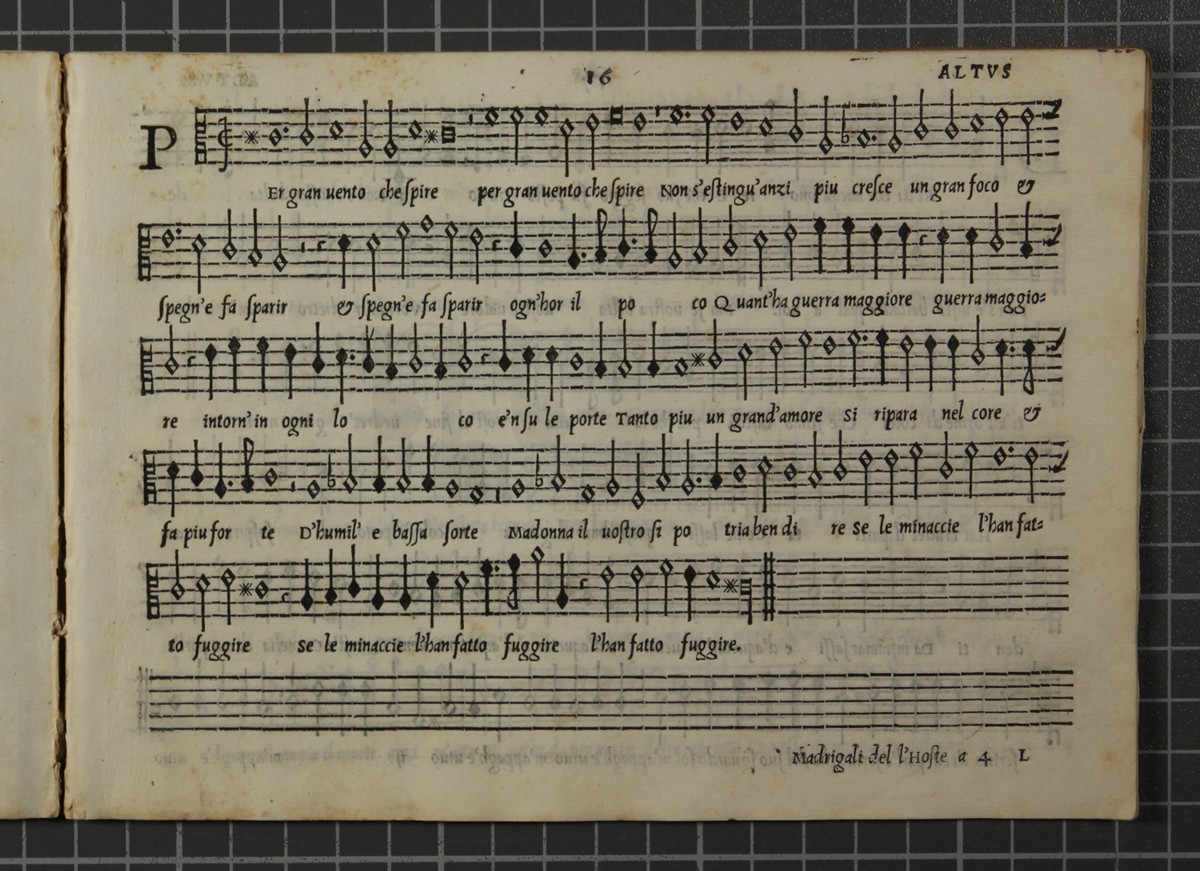 16
ALTVS
PEr gran uento che ſpire per gran uento che ſpire Non s'eſtingu'anzi piu creſce un gran foco &
ſpegn'e fa ſparir & ſpegn'e fa ſparir ogn'hor il po co Quant'ha guerra maggiore guerra maggio=
re intorn'in ogni lo co e'n ſu le porte Tanto piu un grand'amore Si ripara nel core &
fa piu for te D'humil' e baſſa ſorte Madonna il uoſtro ſi po tria ben di re Se le minaccie l'han fat=
to fuggire Se le minaccie l'han fatto fuggire l'han fatto fuggire.
Madrigali del l'Hoſte a 4 L